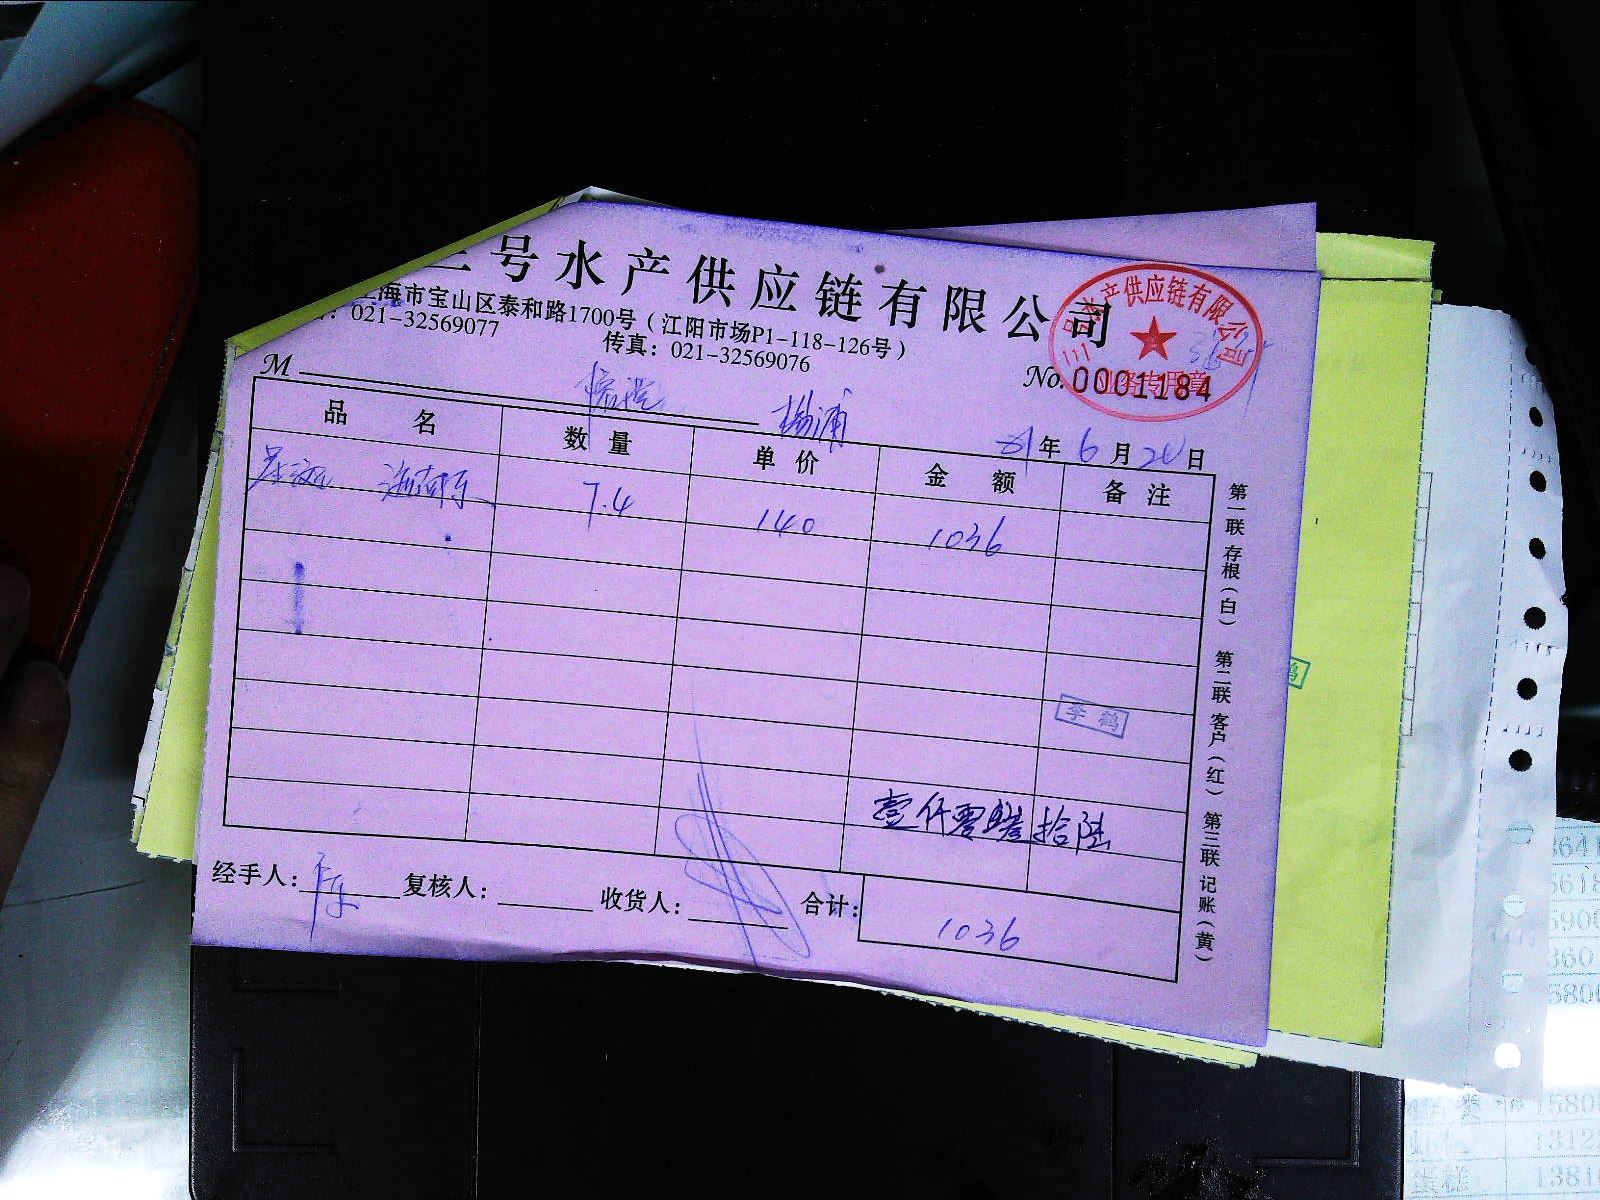 三号水产供应链有限公司
上海市宝山区泰和路1700号（江阳市场P1-118-126号）
021-32569077 传真：021-32569076
三号水产供应链有限公司
业务专用章
M
杨浦
No. 0001184
年 6 月 20 日
品 名 数 量 单 价 金 额 备 注
7.4 140 1036
李鹤
壹仟零叁拾陆
经手人： 复核人： 收货人： 合计：
1036
第一联 存根（白） 第二联 客户（红） 第三联 记账（黄）
鹤
5618
5900
360
1580
1312
蛋糕 1381